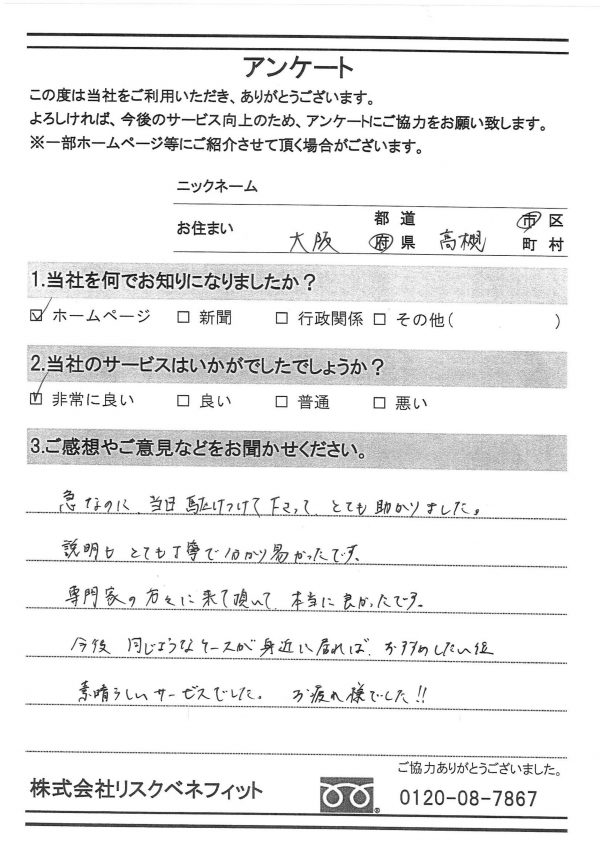 アンケート
この度は当社をご利用いただき、ありがとうございます。
よろしければ、今後のサービス向上のため、アンケートにご協力をお願い致します。
※一部ホームページ等にご紹介させて頂く場合がございます。
ニックネーム
お住まい 大阪 都道府県 高槻 市区町村
1.当社を何でお知りになりましたか？
☑ ホームページ □ 新聞 □ 行政関係 □ その他( )
2.当社のサービスはいかがでしたでしょうか？
☑ 非常に良い □ 良い □ 普通 □ 悪い
3.ご感想やご意見などをお聞かせください。
急なのに、当日駆けつけて下さって、とても助かりました。
説明もとても丁寧で分かり易かったです。
専門家の方々に来て頂いて、本当に良かったです。
今後 同じようなケースが身近に居れば、おすすめしたい位
素晴らしいサービスでした。 お疲れ様でした!!
ご協力ありがとうございました。
株式会社リスクベネフィット
0120-08-7867